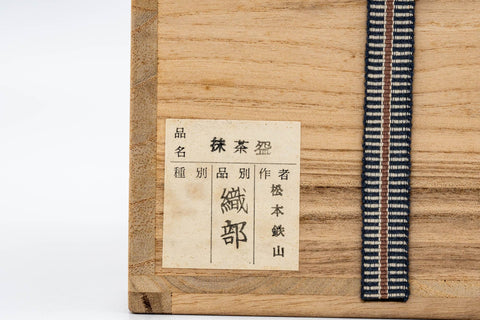 品名 抹茶盌
種別 品別 作者
織部
松本鉄山